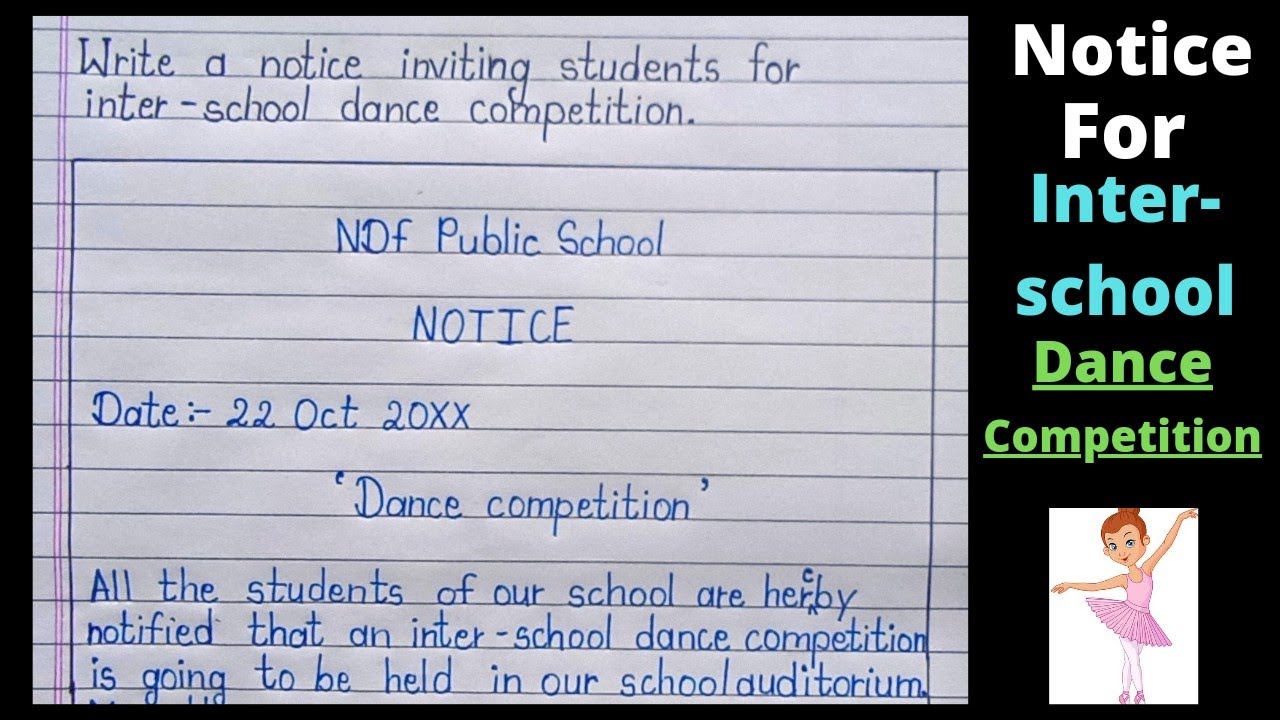 Write a notice inviting students for
inter-school dance competition.
NDf Public School
NOTICE
Date:- 22 Oct 20XX
'Dance competition'
All the students of our school are hereby
notified that an inter-school dance competition
is going to be held in our school auditorium.
Notice
For
Inter-
school
Dance
Competition